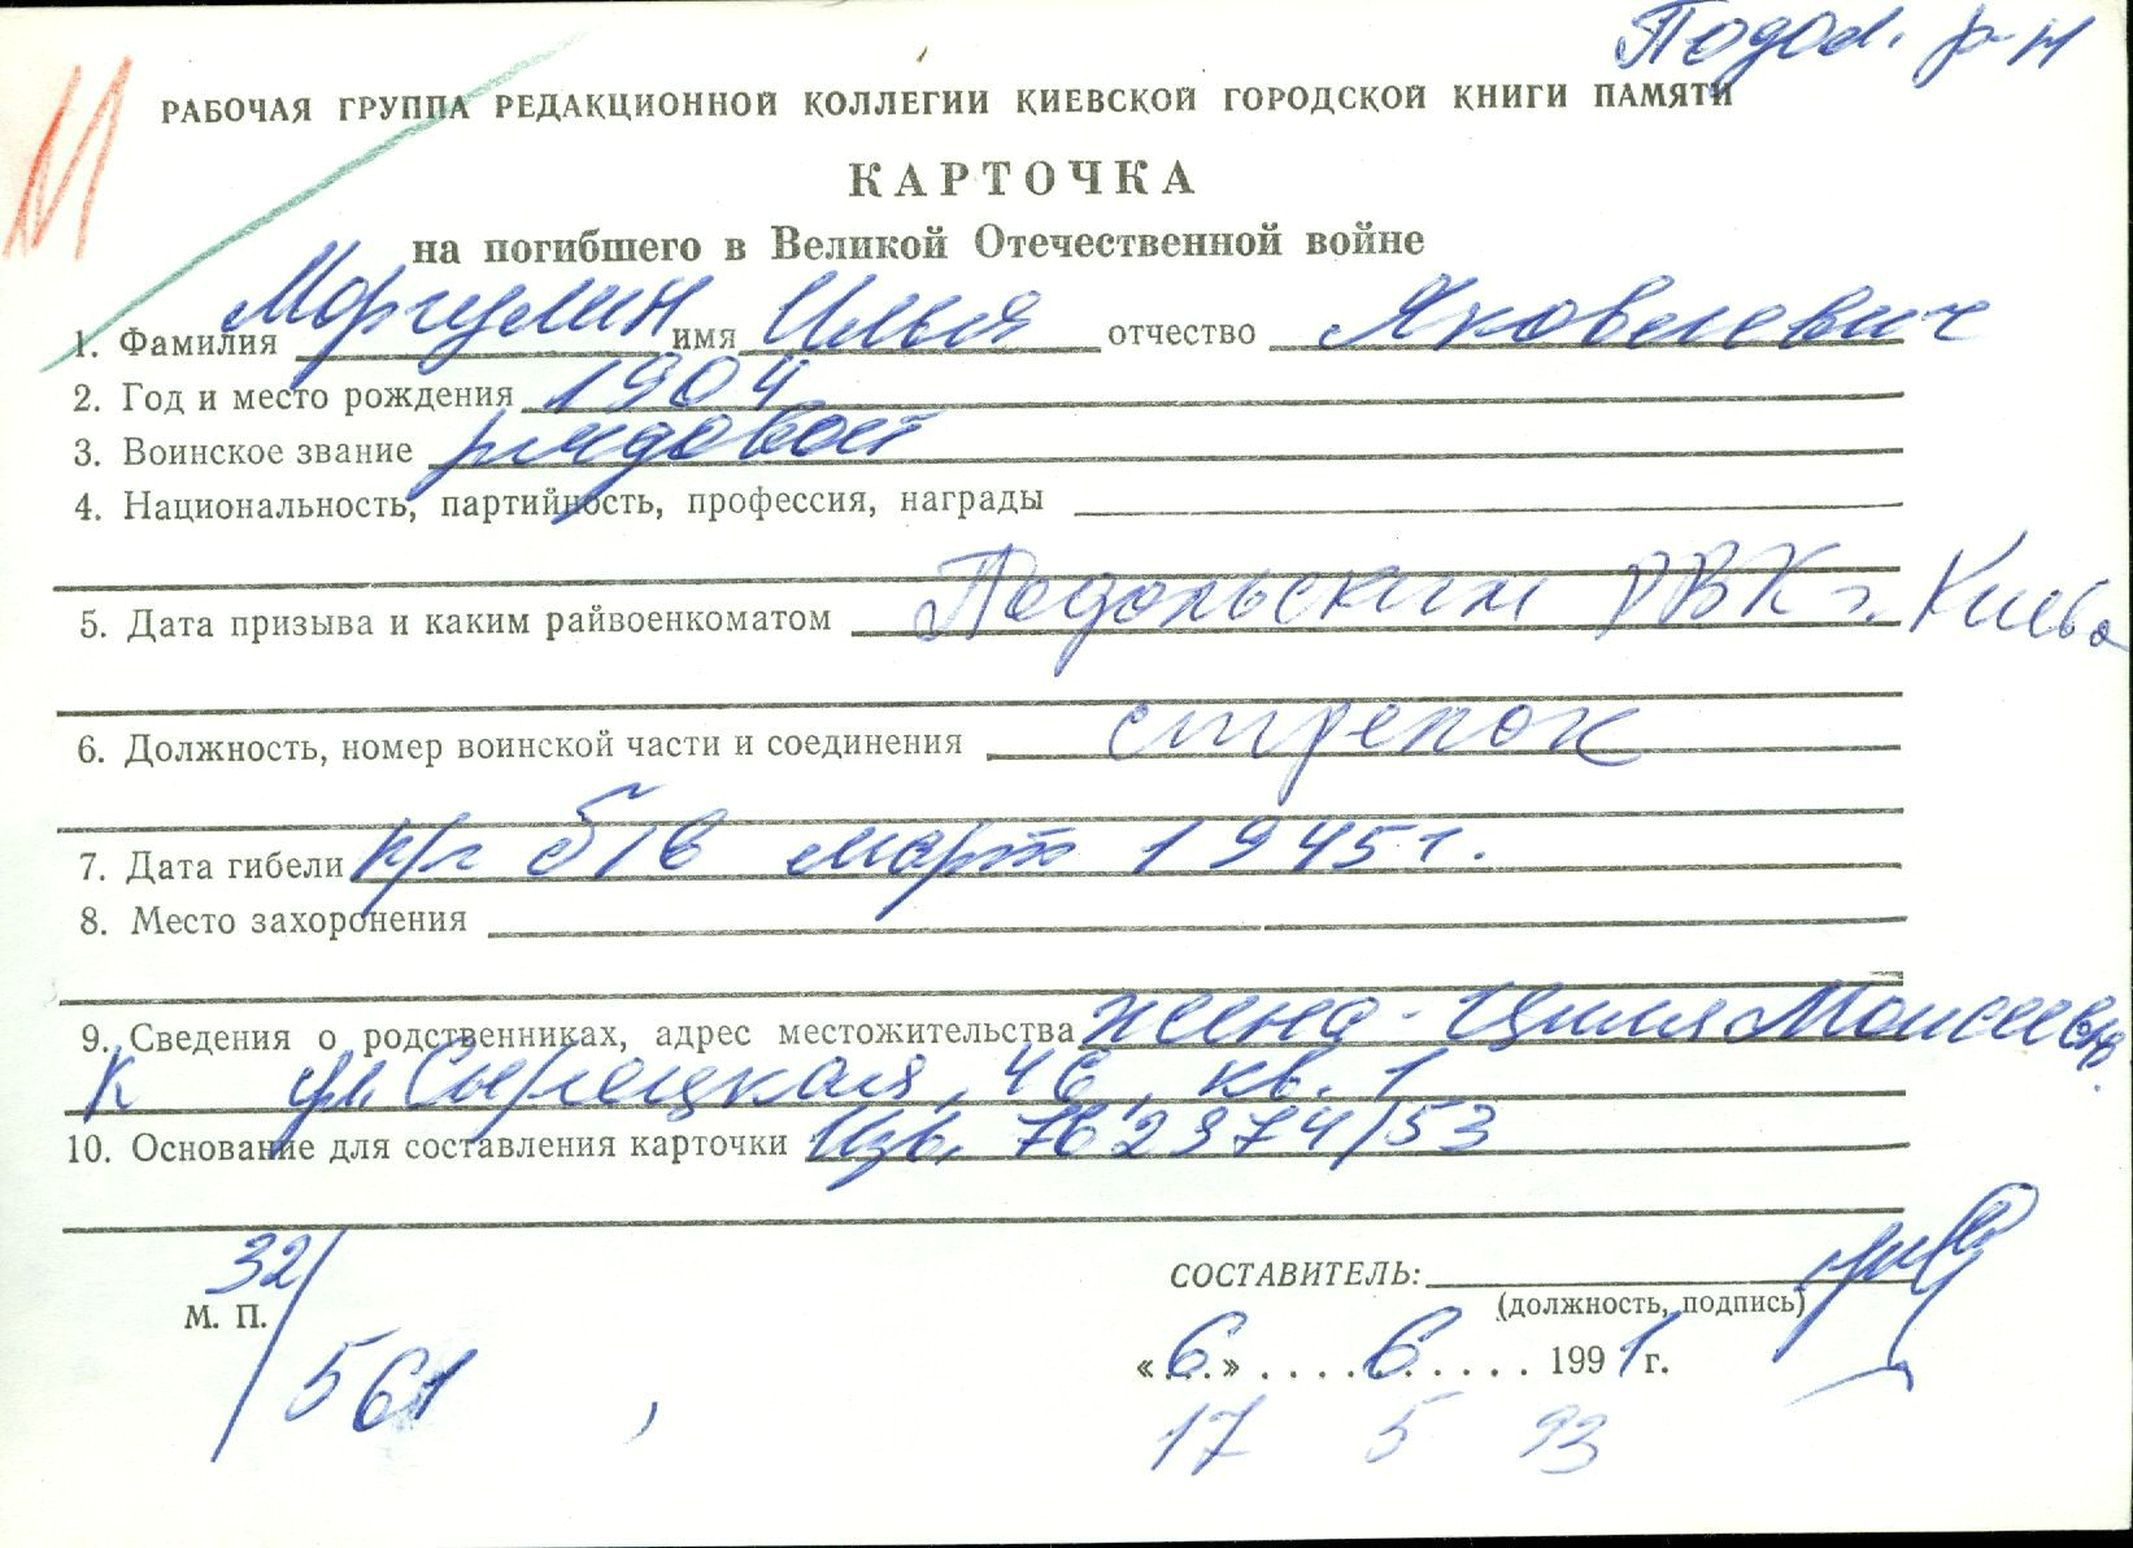 Подол. р-н
М
РАБОЧАЯ ГРУППА РЕДАКЦИОННОЙ КОЛЛЕГИИ КИЕВСКОЙ ГОРОДСКОЙ КНИГИ ПАМЯТИ
КАРТОЧКА
на погибшего в Великой Отечественной войне
1. Фамилия Моргулин имя Илья отчество Яковлевич
2. Год и место рождения 1904
3. Воинское звание рядовой
4. Национальность, партийность, профессия, награды
5. Дата призыва и каким райвоенкоматом Подольским РВК г. Киева
6. Должность, номер воинской части и соединения стрелок
7. Дата гибели п/п б/в март 1945 г.
8. Место захоронения
9. Сведения о родственниках, адрес местожительства жена - Циля Моисеевна.
К ул. Сырецкая, 46, кв. 1
10. Основание для составления карточки Изв. 762974/53
32/561
М. П.
СОСТАВИТЕЛЬ:
(должность, подпись)
«6» .... 6 ..... 1991 г.
17 5 93